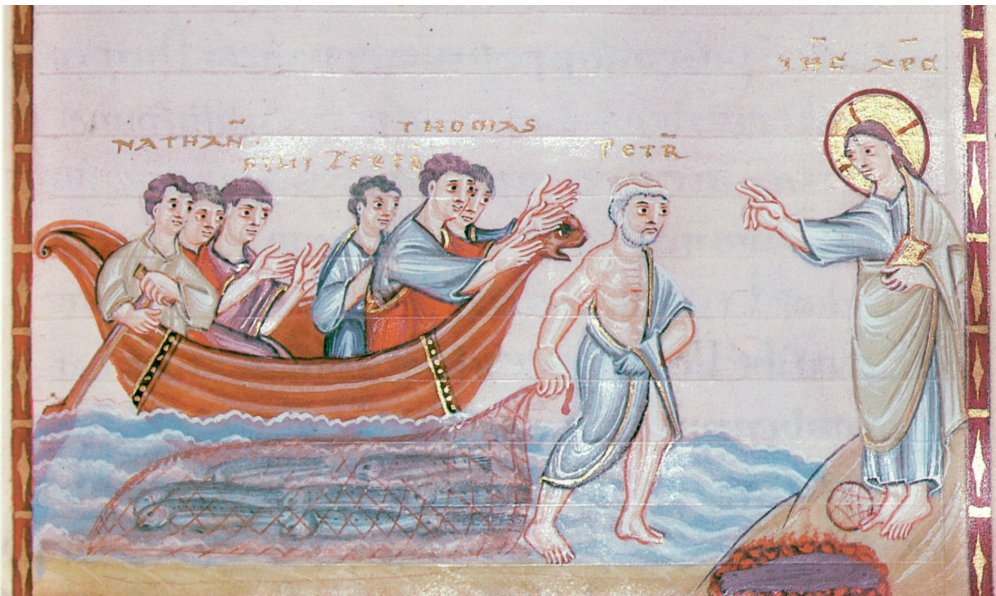 IH̄C XP̄C
THOMAS
NATHAN̄
FILII ZEBED̄
PETR̄